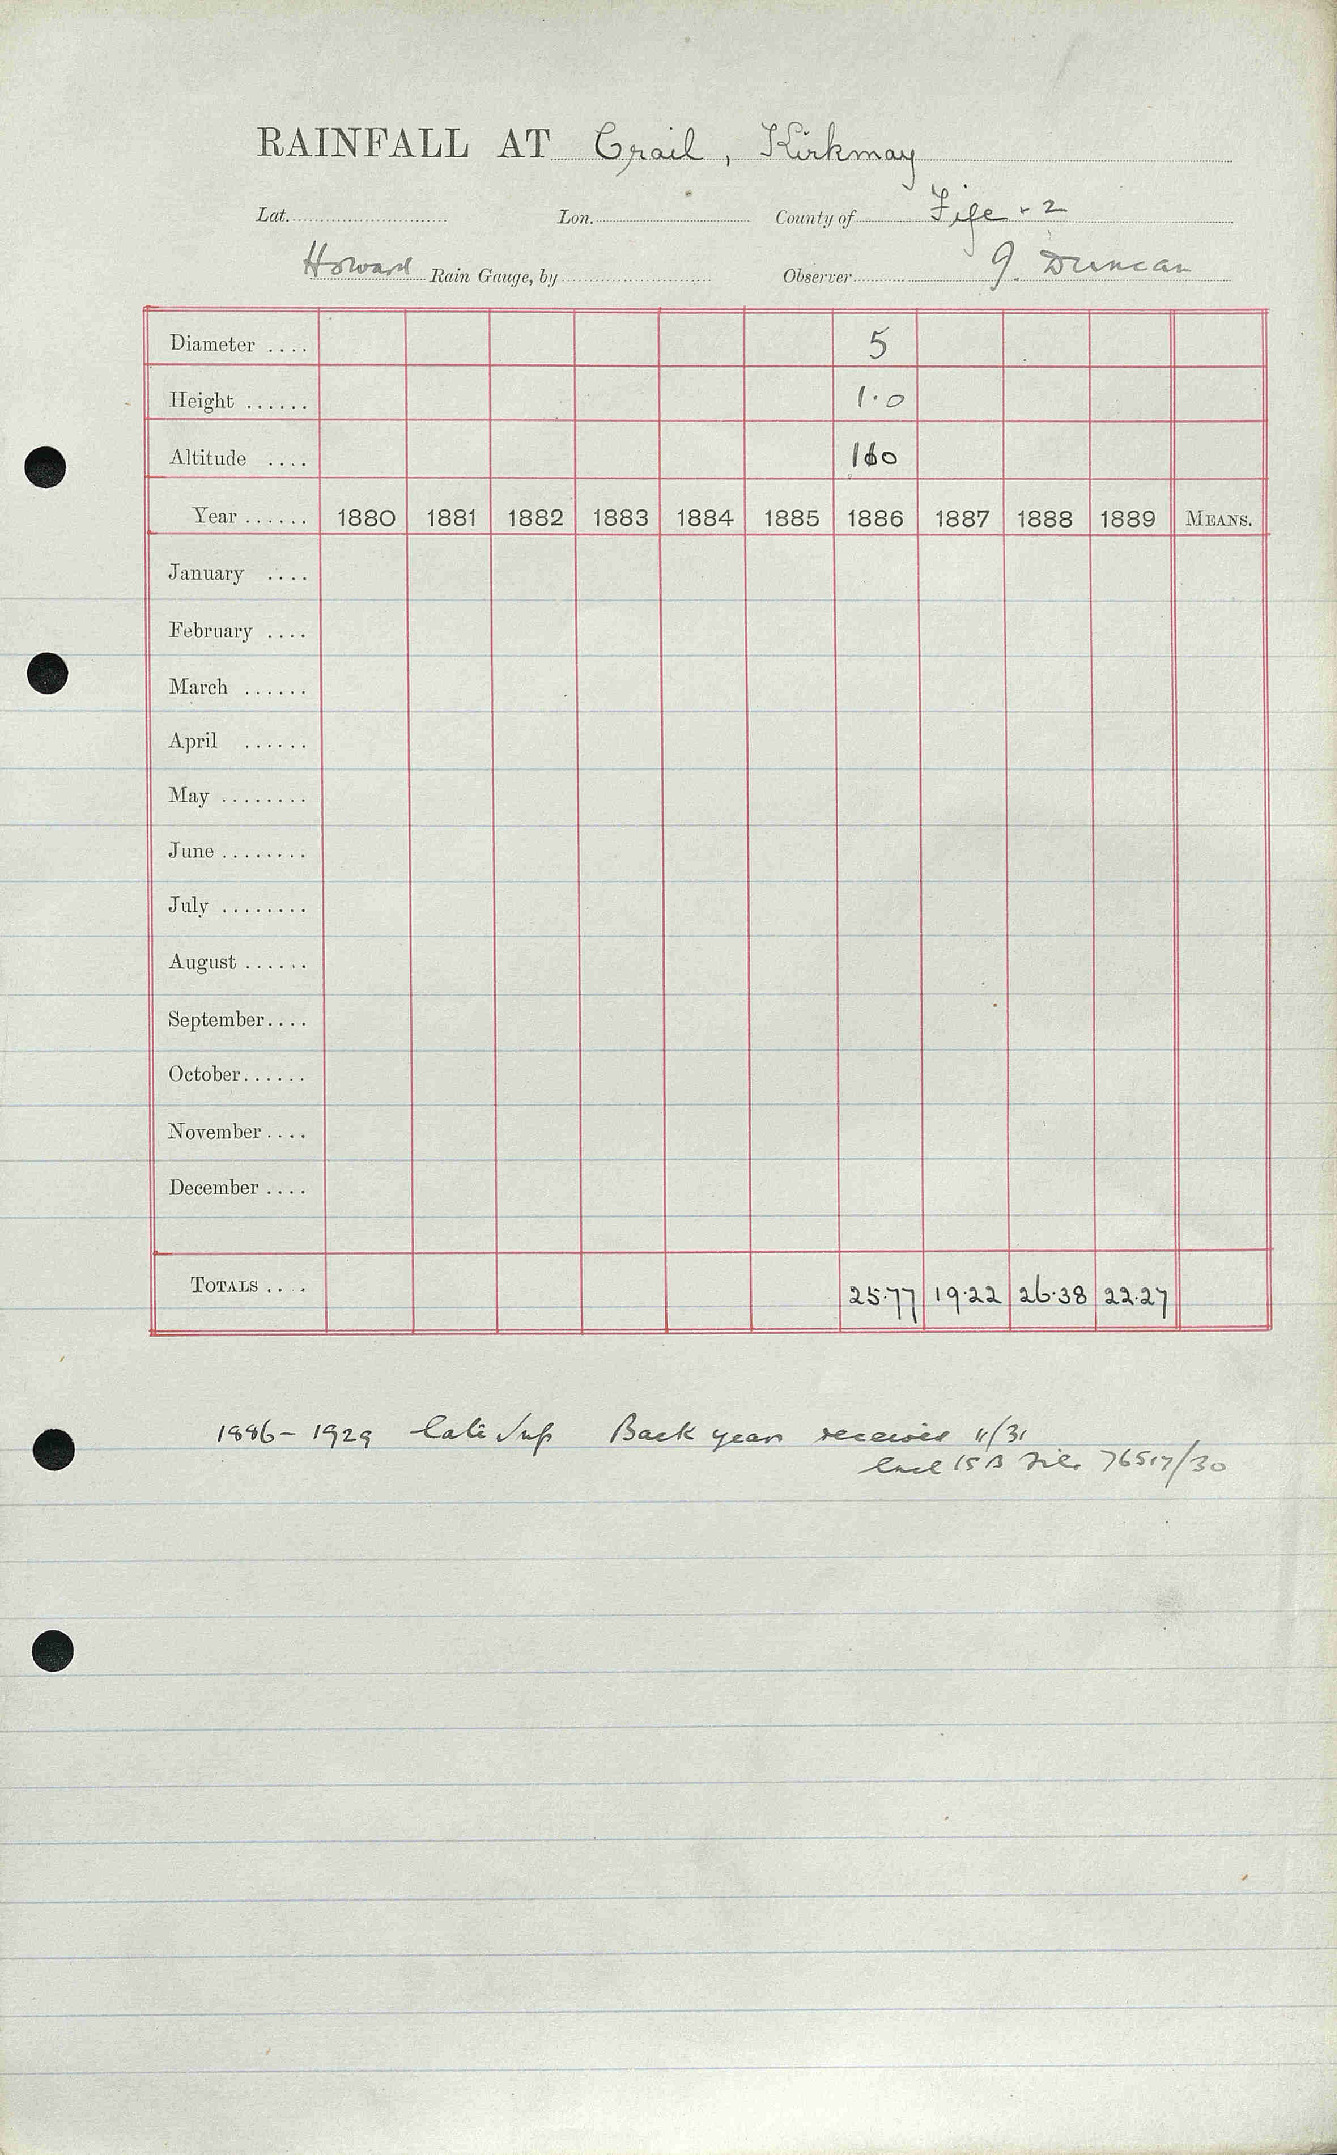 RAINFALL AT Crail, Kirkmay
Lat. Lon. County of Fife - 2
Howard Rain Gauge, by Observer J. Duncan
Diameter .... 5
Height ...... 1.0
Altitude ....
Year ...... 1880 1881 1882 1883 1884 1885 1886 1887 1888 1889 MEANS.
January ....
February ....
March ......
April ......
May ........
June ........
July ........
August ......
September....
October......
November....
December ....
TOTALS .... 25.77 19.22 26.38 22.27
1886 - 1929 Back years received 11/31
15B File 76517/30